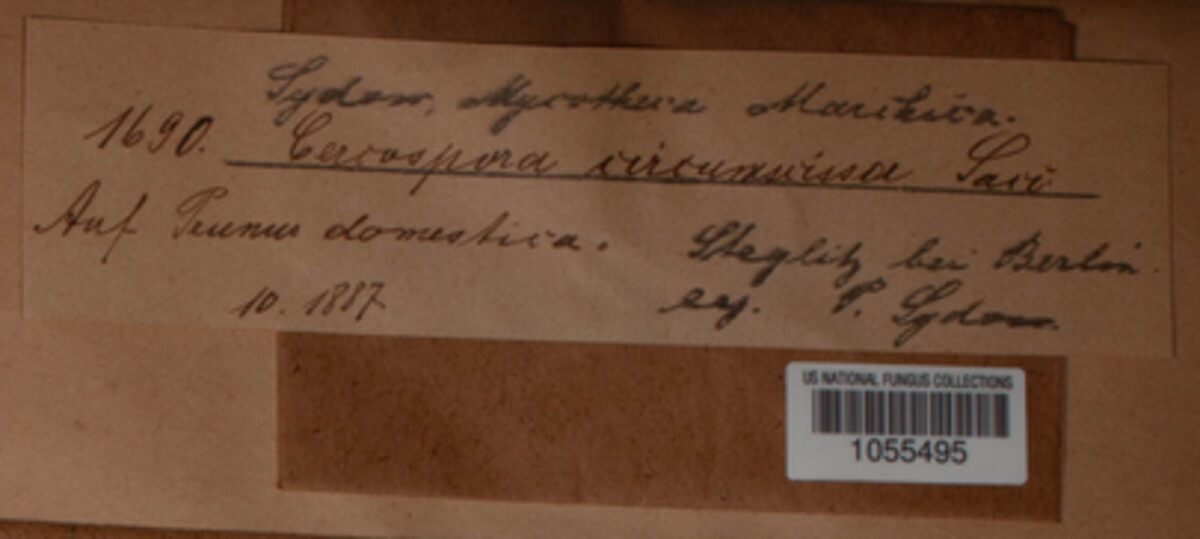 Sydow, Mycotheca Marchica.
1690. Cercospora circumscissa Sacc
Auf Prunus domestica. Steglitz bei Berlin.
10. 1887 leg. P. Sydow.
US NATIONAL FUNGUS COLLECTIONS
1055495